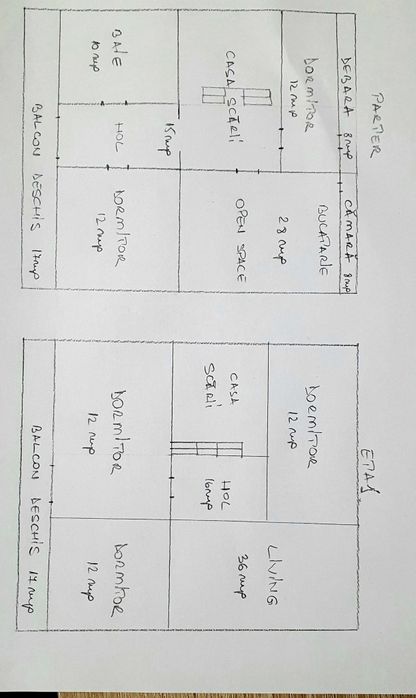 PARTER
DEBARA 8mp
CĂMARĂ 8mp
DORMITOR
12 mp
BUCATARIE
28 mp
OPEN SPACE
CASA SCĂRII
15 mp
BAIE
10 mp
HOL
DORMITOR
12 mp
BALCON DESCHIS 17mp
ETAJ
DORMITOR
12 mp
LIVING
36 mp
CASA
SCĂRII
HOL
16mp
DORMITOR
12 mp
DORMITOR
12 mp
BALCON DESCHIS 17 mp